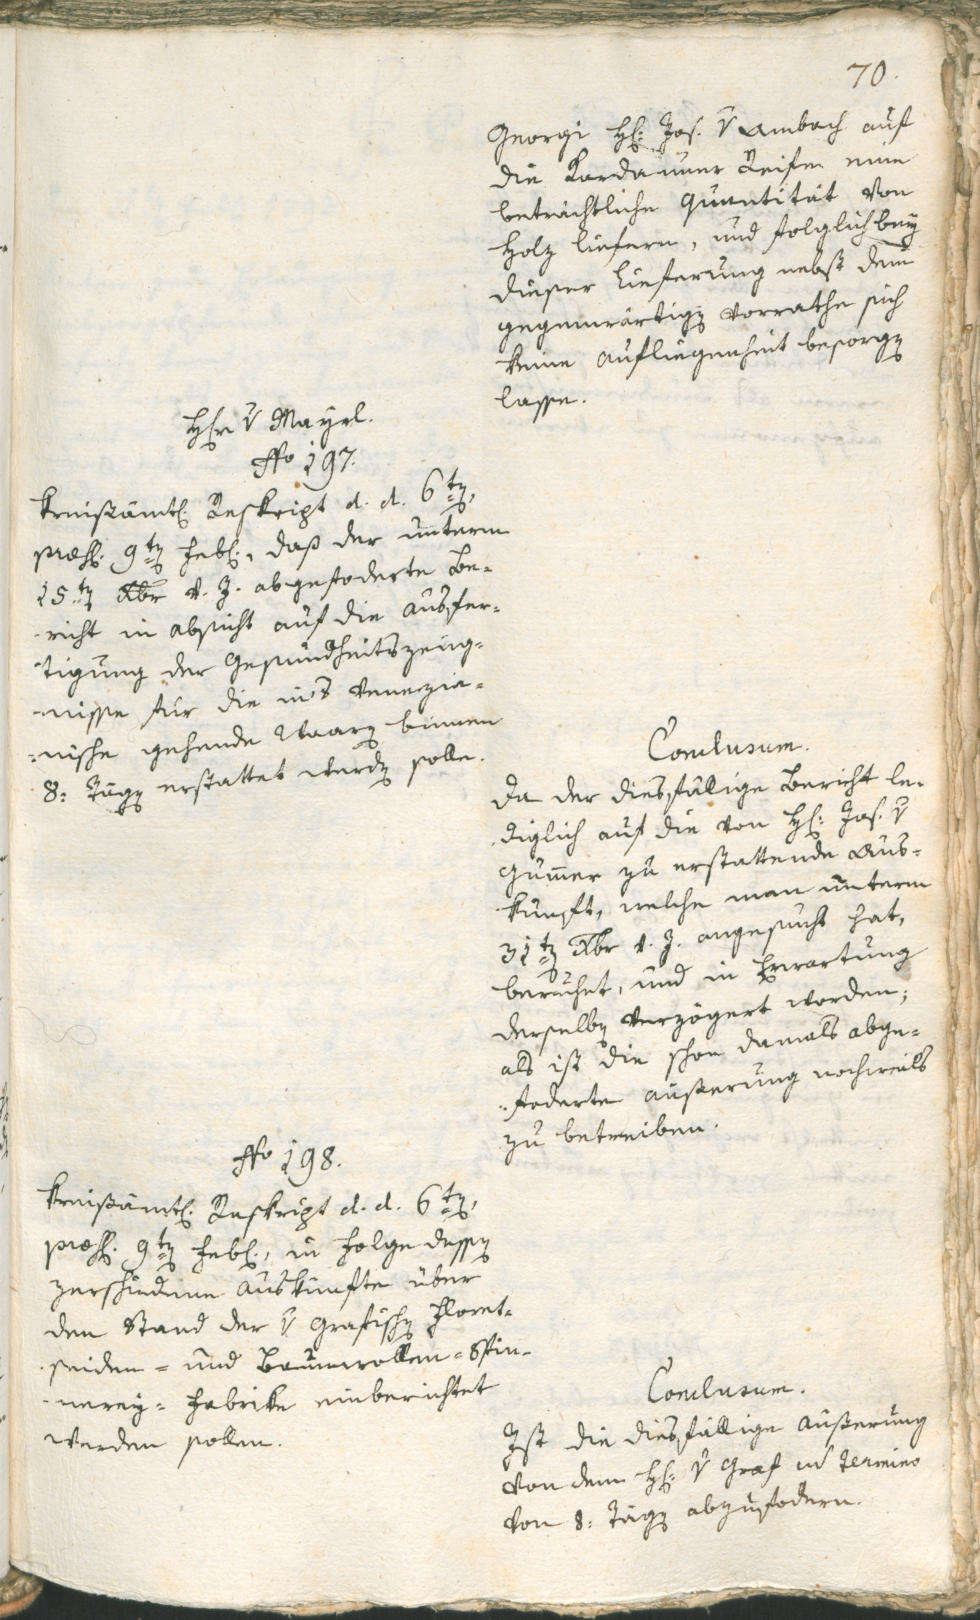 70.
Georgi H: Jos. v Ambach auf
die Kardauner Reifen eine
beträchtliche Quantität von
Holz liefern, und folglich bey
dieser Lieferung nebst dem
gegenwärtigen Vorrathe sich
keine Aufliegenheit besorgen
lasse.
Hr v Mayrl.
No 197.
Kreisämtl. Reskript d. d. 6ten,
præs. 9ten Feb., daß der unterm
15ten Xbr v. J. abgefoderte Be-
richt in Absicht auf die Ausfer-
tigung der Gesundheitszeug-
nisse für die ins Venezia-
nische gehende Waaren binnen
8: Tägen erstattet werden solle.
Conclusum.
Da der diesfällige Bericht le-
diglich auf die von H: Jos. v
Gummer zu erstattende Aus-
kunft, welche man unterm
31ten Xbr v. J. angesucht hat,
beruhet, und in Erwartung
derselben verzögert worden;
als ist die schon damals abge-
foderte Äußerung nochmals
zu betreiben.
No 198.
Kreisämtl. Reskript d. d. 6ten,
præs. 9ten Feb., in Folge dessen
zerschiedene Auskünfte über
den Stand der v Grafischen Floret-
seiden- und Baumwollen-Spin-
nerey-Fabrike einberichtet
werden sollen.
Conclusum.
Ist die diesfällige Äußerung
von dem H: v Graf in Termino
von 8: Tägen abzufodern.